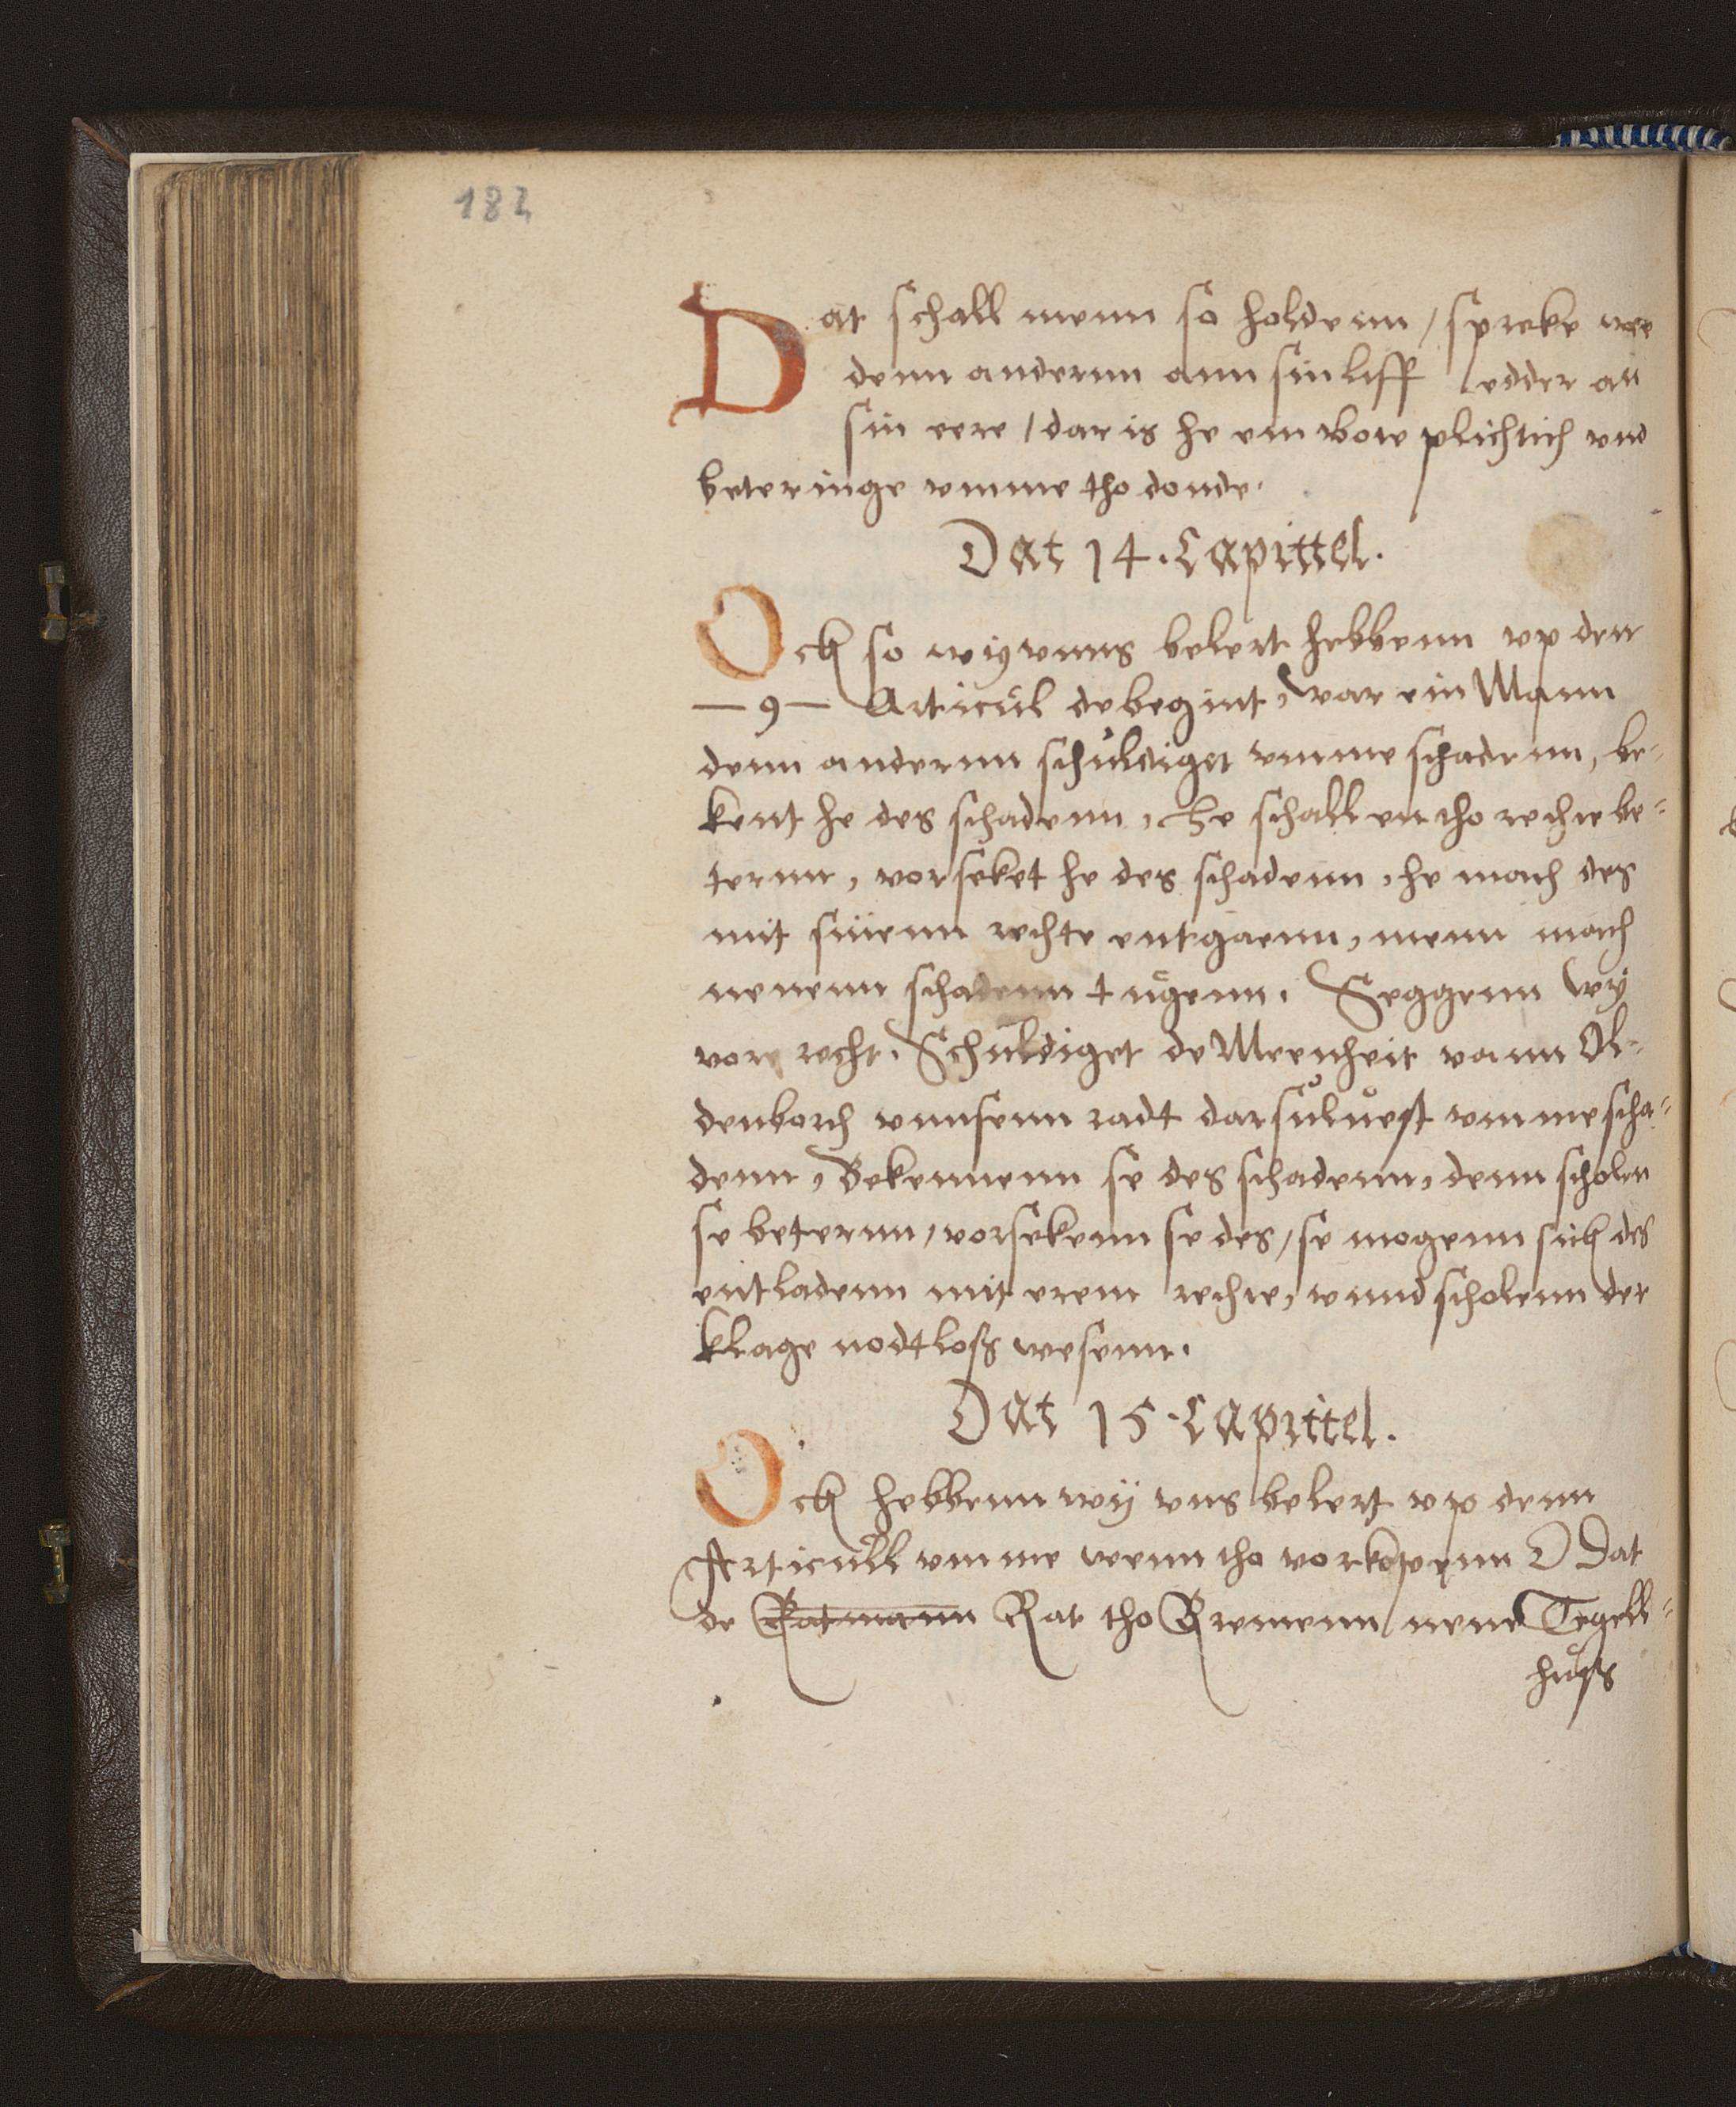 182
Dat schall menn so holdenn / spreke wee
denn andernn ann sin liff / edder an
sin eere / dar is he em bote plichtich vnd
beteringe vmme tho donde.
Dat 14. Capittel.
Ock so wy vnns belert hebbenn vp den
— 9 — Articul de begint, war ein Mann
denn andernn schuldiget vmme schadenn, be-
kent he des schadenn, He schall en tho rechte be-
ternn, vorseket he des schadenn, he mach des
mit sinenn rechte entgaenn, menn mach
nenenn schadenn tugenn. Seggenn wy
vor recht. Schuldiget de Meenheit vann Ol-
denborch vnnsenn radt darsuluest vmme scha-
denn, Bekennenn se des schadenn, denn scholen
se beternn, vorsekenn se des, se mogenn sick des
entladenn mit erem rechte, vnnd scholenn der
klage nodtloß wesenn.
Dat 15. Capittel.
Ock hebbenn wy vns belert vp denn
Articull vmme wenn tho vorkopenn Dat
de Ratmann Rat tho Bremenn nene Tegell-
huß